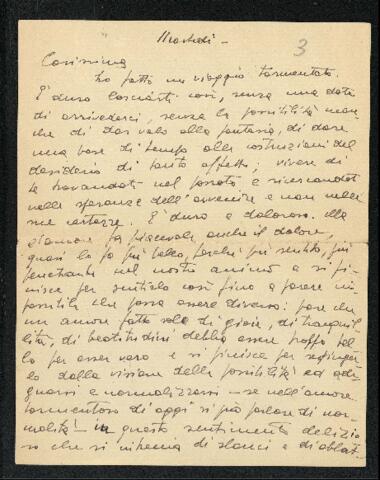 Martedì -
3
Carissima
ho fatto un viaggio tormentato.
È duro lasciarti così, senza una data
di arrivederci, senza la possibilità nean
che di dar valo alla fantasia, di dare
una base di tempo alle costruzioni del
desiderio di tanto affetto; vivere di
te trovandoti nel passato e ricercandoti
nelle speranze dell'avvenire e non nelle
sue certezze. È duro e doloroso. Ma
l'amore fa piacevole anche il dolore,
quasi lo fa più bello, perché più sentito, più
penetrante nel nostro animo e si fi-
nisce per sentirlo così fino a parere im-
possibile che possa essere diverso: pare che
un amore fatto solo di gioie, di tranquil
lità, di beatitudini debba essere troppo bel
lo per esser vero e si finisce per respinger
lo dalla visione della possibilità ed ade
guarsi e normalizzarsi - se nell'amore
tormentoso di oggi si può parlare di nor
malità - in questo sentimento delizio
so che si intreccia di slanci e di oblat